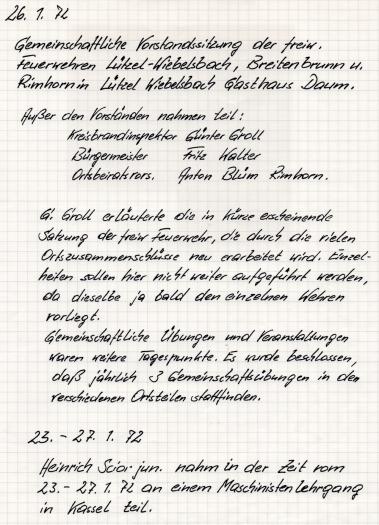 26. 1. 72
Gemeinschaftliche Vorstandssitzung der freiw.
Feuerwehren Lützel-Wiebelsbach, Breitenbrunn u.
Rimhorn in Lützel Wiebelsbach Gasthaus Daum.
Außer den Vorständen nahmen teil:
Kreisbrandinspektor Günter Groll
Bürgermeister Fritz Walter
Ortsbeiratsvors. Anton Blüm Rimhorn.
G. Groll erläuterte die in Kürze erscheinende
Satzung der freiw Feuerwehr, die durch die vielen
Ortszusammenschlüsse neu erarbeitet wird. Einzel-
heiten sollen hier nicht weiter aufgeführt werden,
da dieselbe ja bald den einzelnen Wehren
vorliegt.
Gemeinschaftliche Übungen und Veranstaltungen
waren weitere Tagespunkte. Es wurde beschlossen,
daß jährlich 3 Gemeinschaftsübungen in den
verschiedenen Ortsteilen stattfinden.
23. - 27. 1. 72
Heinrich Scior jun. nahm in der Zeit vom
23. - 27. 1. 72 an einem Maschinistenlehrgang
in Kassel teil.